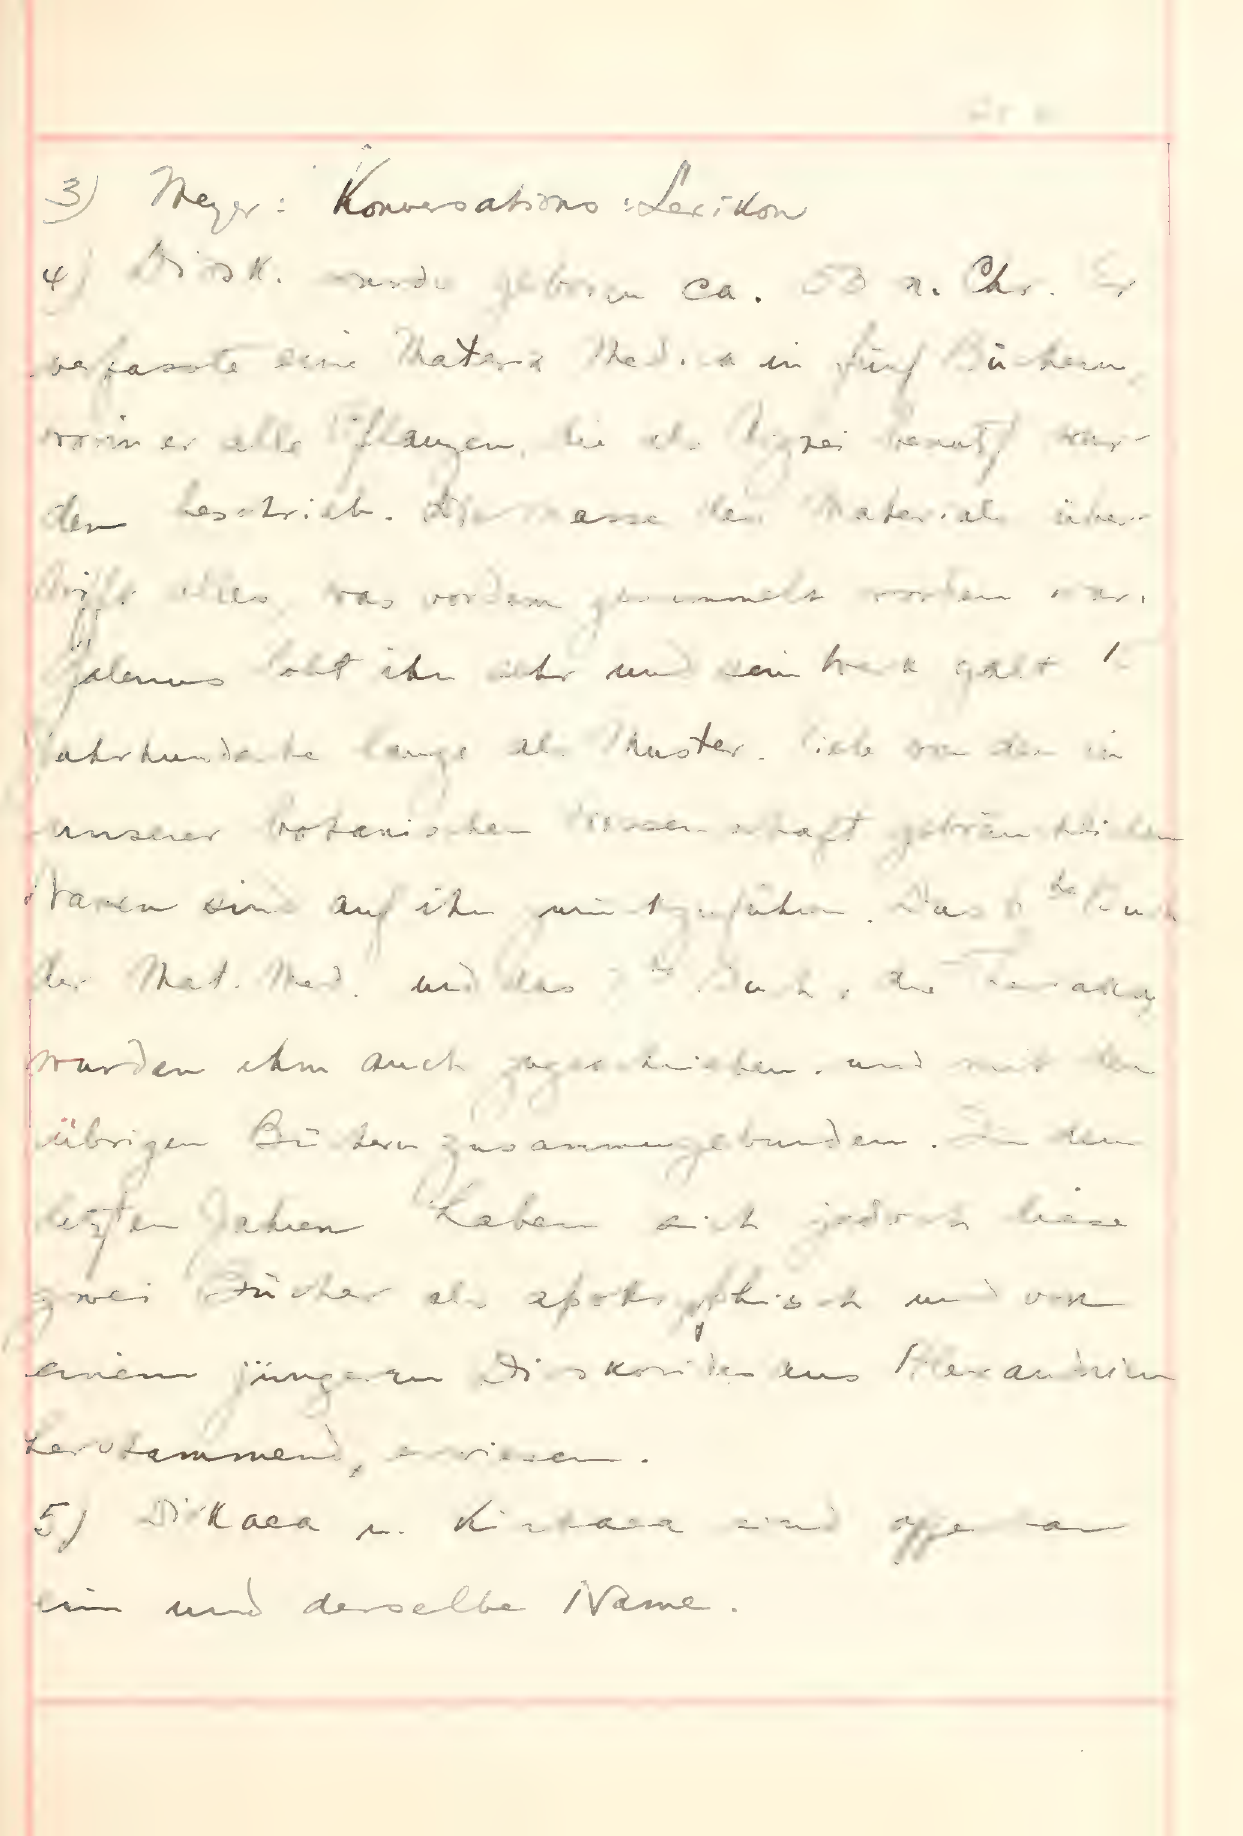 3) Meyer: Konversations:Lexikon
4) Diosk. wurde geboren ca. 53 n. Chr. Er
verfasste eine Materia Medica in fünf Büchern,
worin er alle Pflanzen, die als Arznei benutzt wur-
den beschrieb. Die masse des Materials über-
trifft alles, was vordem gesammelt worden war.
Galenus lobt ihn sehr und sein Werk galt
Jahrhunderte lange als Muster. Viele von den in
unserer botanischen Wissenschaft gebräuchlichen
Namen sind auf ihn zurückzuführen. Das 6te Buch
der Mat. Med. und das 7te Buch, die
wurden ihm auch zugeschrieben. und mit den
übrigen Büchern zusammengebunden. In den
letzten Jahren haben sich jedoch diese
zwei Bücher als apokryphisch und von
einem jüngeren Dioskorides aus Alexandrien
herstammend, erwiesen.
5) Dirkaea u. Kirkaea sind offenbar
ein und derselbe Name.